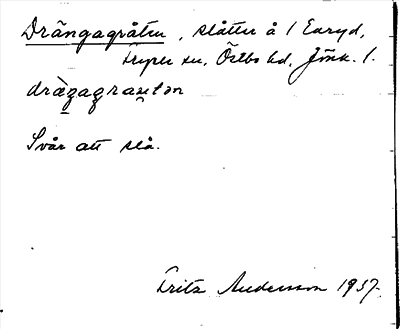 Drängagråten, slåtter å 1 Earyd,
Fryele sn, Östbo hd, Jönk. l.
dræ̀ŋagrautən
Svår att slå.
Fritz Andersson 1937.